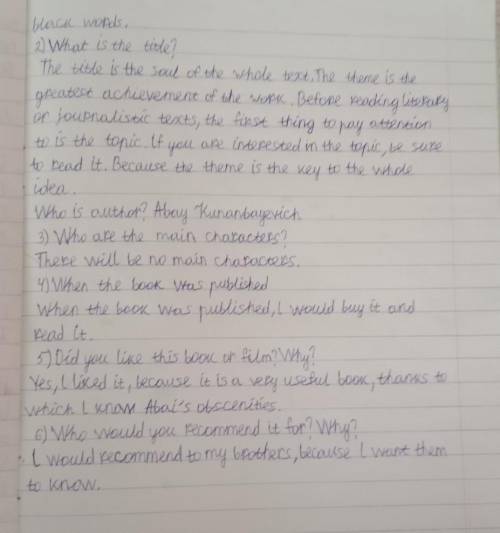 black words.
2) What is the title?
The title is the soul of the whole text. The theme is the
greatest achievement of the work. Before reading literary
or journalistic texts, the first thing to pay attention
to is the topic. If you are interested in the topic, be sure
to read it. Because the theme is the key to the whole
idea.
Who is author? Abay Kunanbayevich
3) Who are the main characters?
There will be no main characters.
4) When the book was published
When the book was published, I would buy it and
read it.
5) Did you like this book or film? Why?
Yes, I liked it, because it is a very useful book, thanks to
which I know Abai's obscenities.
6) Who would you recommend it for? Why?
I would recommend to my brothers, because I want them
to know.